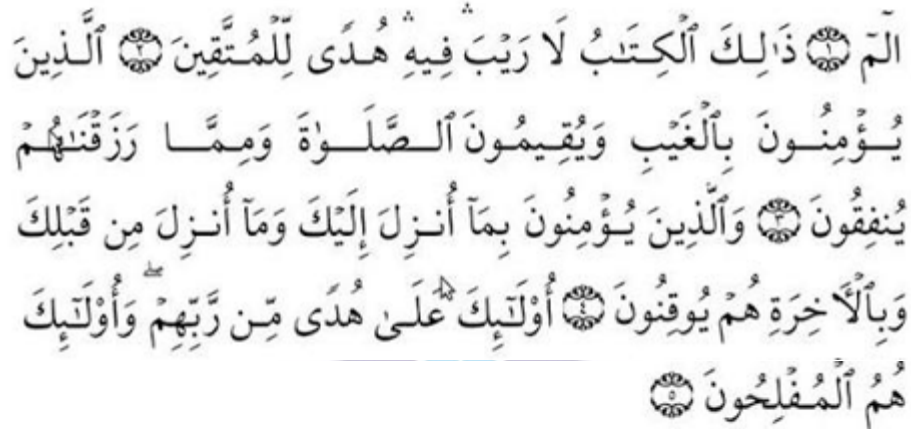 الٓمٓ ١ ذَٰلِكَ ٱلْكِتَٰبُ لَا رَيْبَ ۛ فِيهِ ۛ هُدًى لِّلْمُتَّقِينَ ٢ ٱلَّذِينَ
يُؤْمِنُونَ بِٱلْغَيْبِ وَيُقِيمُونَ ٱلصَّلَوٰةَ وَمِمَّا رَزَقْنَٰهُمْ
يُنفِقُونَ ٣ وَٱلَّذِينَ يُؤْمِنُونَ بِمَآ أُنزِلَ إِلَيْكَ وَمَآ أُنزِلَ مِن قَبْلِكَ
وَبِٱلْأَخِرَةِ هُمْ يُوقِنُونَ ٤ أُوْلَٰٓئِكَ عَلَىٰ هُدًى مِّن رَّبِّهِمْ ۖ وَأُوْلَٰٓئِكَ
هُمُ ٱلْمُفْلِحُونَ ٥